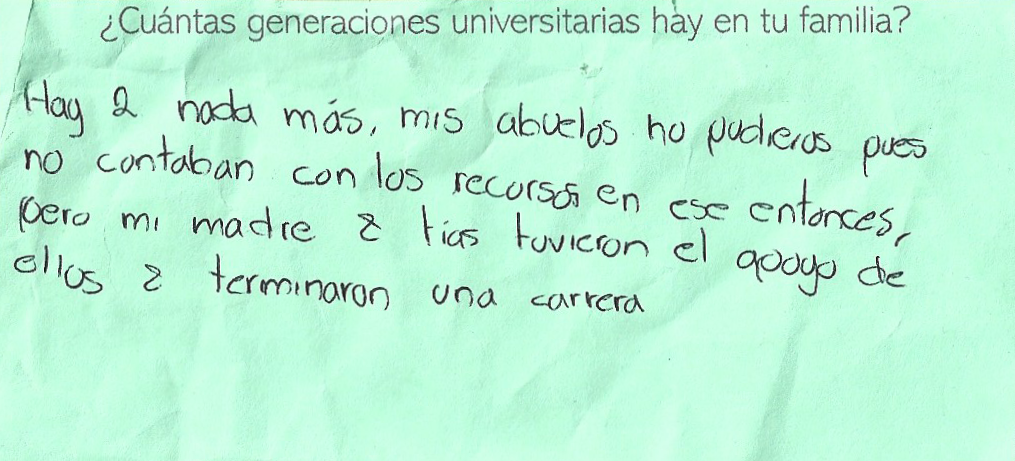 ¿Cuántas generaciones universitarias hay en tu familia?
Hay 2 nada más, mis abuelos no pudieros pues
no contaban con los recursos en ese entonces,
pero mi madre & tias tuvieron el apoyo de
ellos & terminaron una carrera